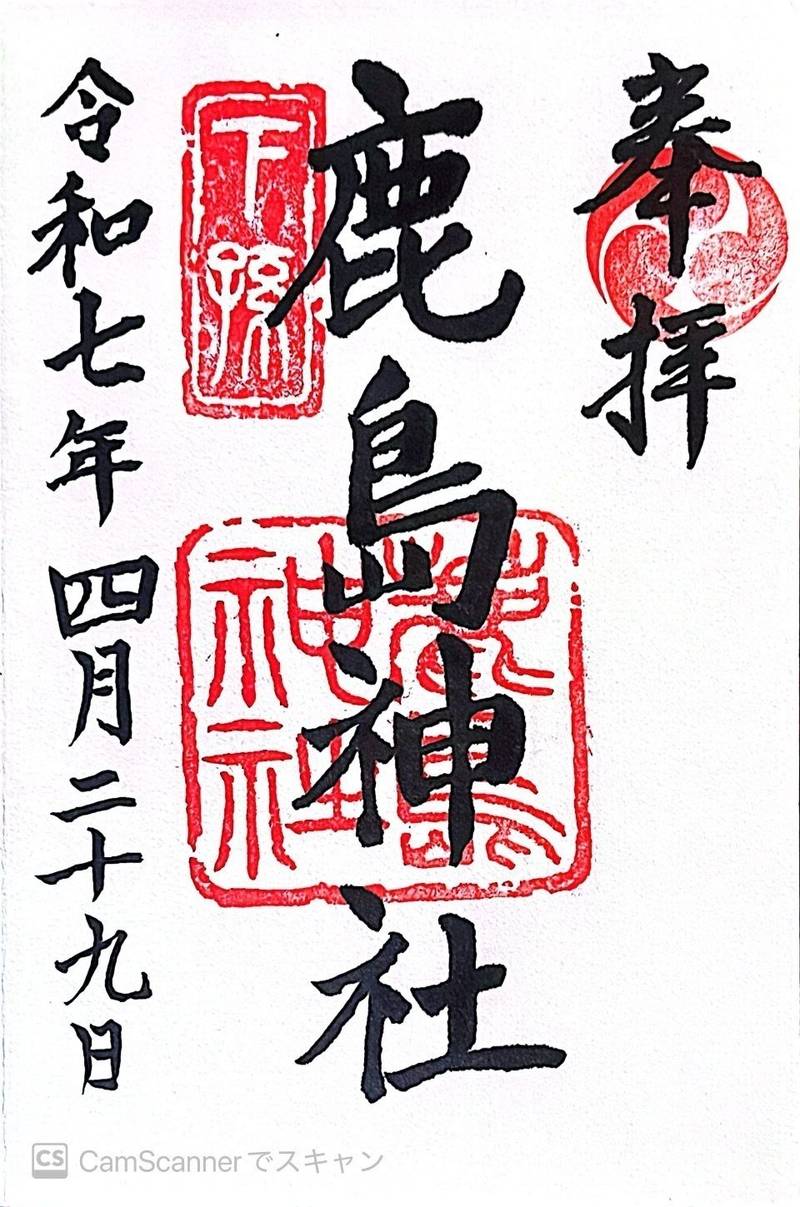 奉拝
鹿島神社
下孫
鹿島神社
令和七年四月二十九日
CS CamScannerでスキャン